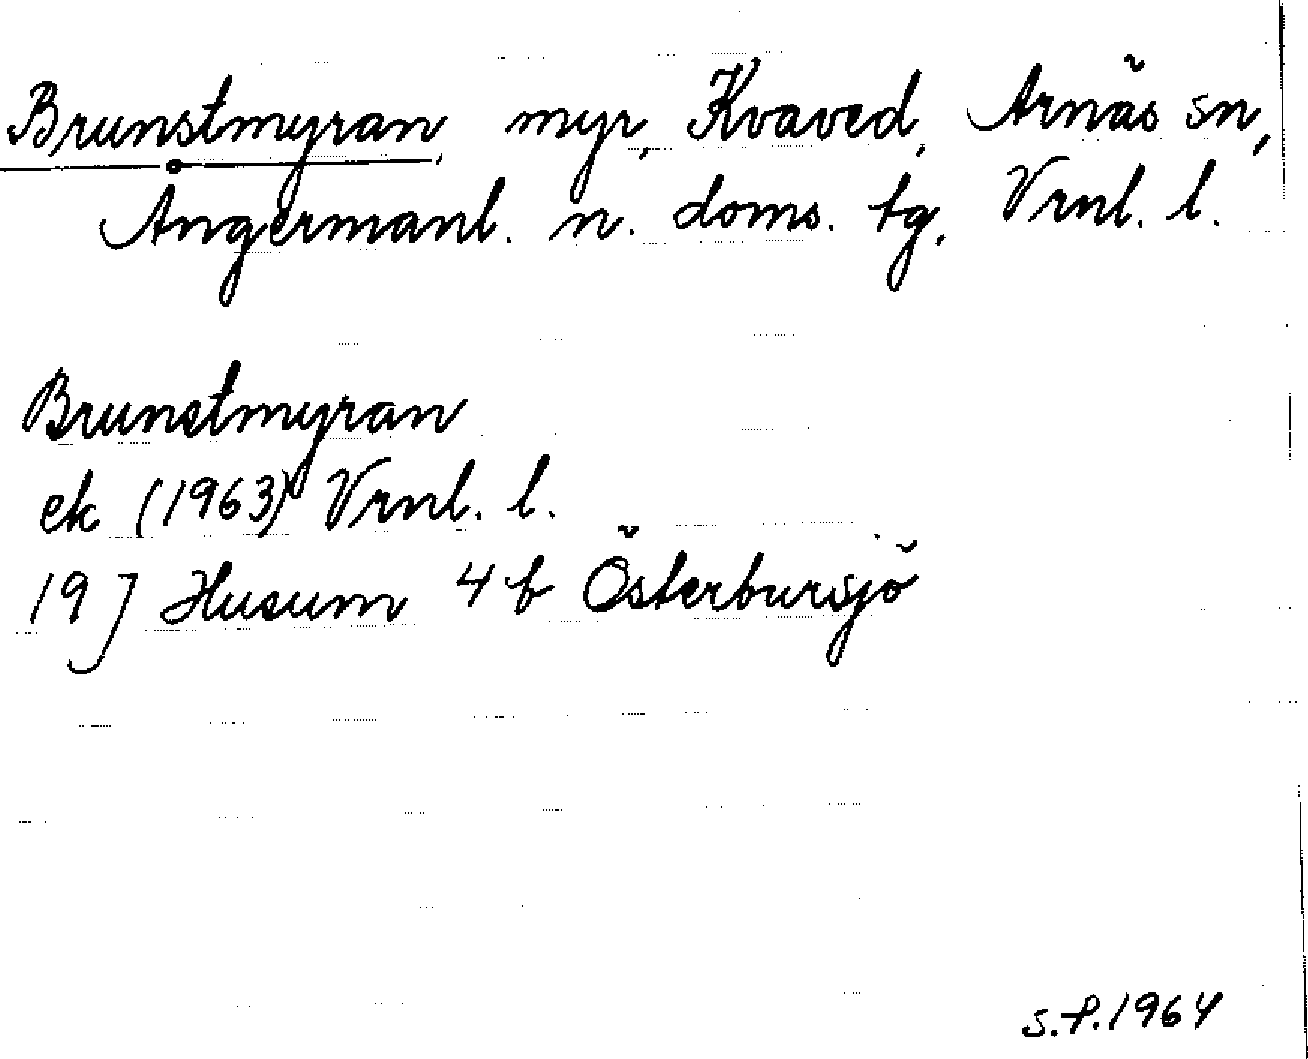 Brunstmyran, myr, Kvaved, Arnäs sn,
Ångermanl. n. doms. tg, Vrnl. l.
Brunstmyran
ek (1963) Vrnl. l.
19 J Husum 4 b Österbursjö
S.P. 1964